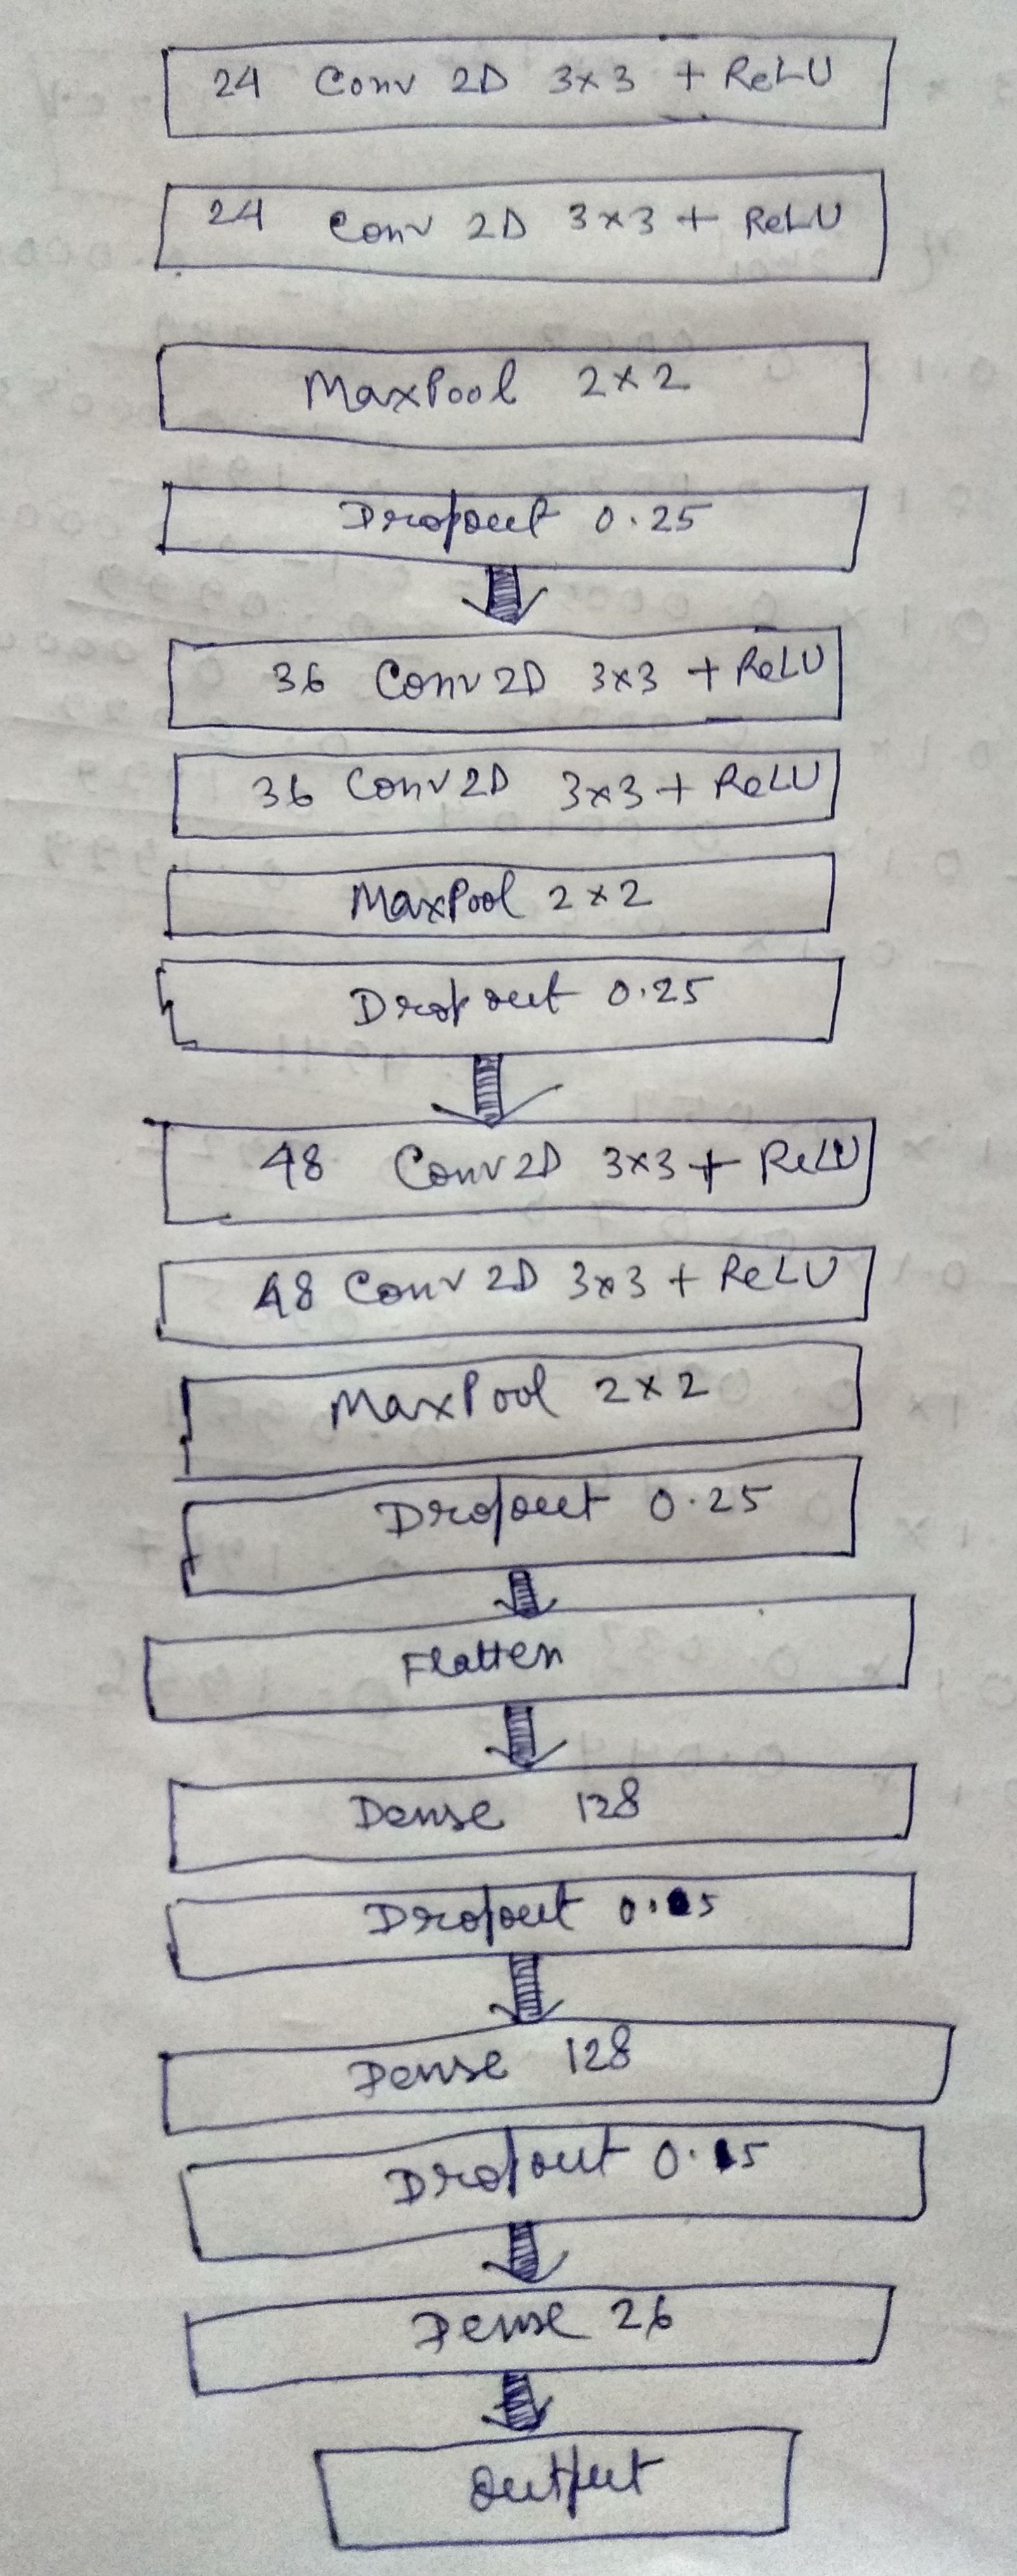 24 Conv 2D 3x3 + ReLU
24 Conv 2D 3x3 + ReLU
MaxPool 2x2
Dropout 0.25
36 Conv 2D 3x3 + ReLU
36 Conv 2D 3x3 + ReLU
MaxPool 2x2
Dropout 0.25
48 Conv 2D 3x3 + ReLU
48 Conv 2D 3x3 + ReLU
MaxPool 2x2
Dropout 0.25
Flatten
Dense 128
Dropout
Dense 128
Dropout
Dense 26
Output